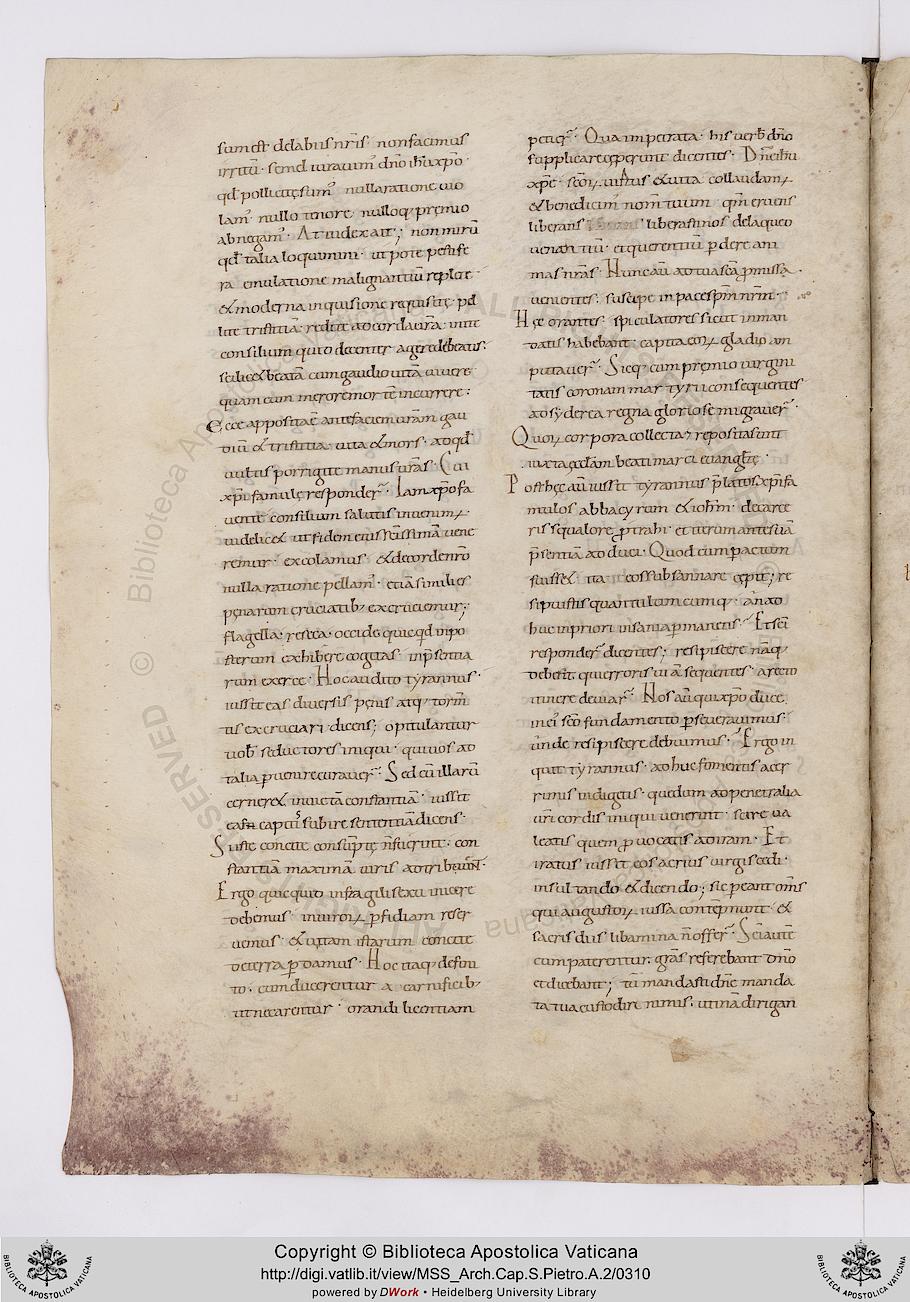 sum est de labiis nr̄is · non facimus
irritū · semel iuravim̄ dn̄o ih̄u xp̄o ·
qd̄ pollicitę sum̄ nulla ratione vio
lam̄ · nullo tenore · nulloq; pręmio
abnegam̄ · At iudex ait ; non mirū
qd̄ talia loquimini · ut pote pestife
ra emulatione malignantiū replete ·
& moderna inquisitione requisitę · pel
lite tristitiā · redite ad corda vr̄a · inite
consilium quid decenter agere debeatis ·
scilic& beatam cum gaudio vitā vivere
quam cum merore mortē incurrere :
Ecce apposita ante faciem vr̄am gau
diū & tristitia · vita & mors · ad qd̄
vultis porrigite manus vr̄as · Cui
xp̄i famulę responder̄ · Iam xp̄o fa
vente consilium salutis invenim̄ ·
videlic& ut fidem eius sc̄issimā vene
remur · excolamus · & de corde nr̄o
nulla ratione pellam̄ · etiā similies
pęnarum cruciatib; excruciemur ;
flagella · reseca · occide quicqd̄ in po
sterum exhibere cogitas · in p̄sentia
rum exerce · Hoc audito tyrannus ·
iussit eas diversis pęnis atq; torm̄
tis excruciari dicens ; opitulantur
vob̄ seductores iniqui · qui vos ad
talia p̄venire curaver̄ · Sed cū illarū
cerner& invictā constantiā · iussit
subire sententiā dicens ·
Si iste concite consūptę n̄ fuerint · con
stantiam maximā viris adtribuunt ·
Ergo quicquid in fragili sexu invicere
debemus · in viroꝝ p̄fidiam reser
vemus · & vitam istarum concite
de terra p̄damus · Hoc itaq; defini
to · cum ducerentur a carnificib;
ut necarentur · orandi licentiam
petier̄ · Qua impetrata · his verb̄ dn̄o
supplicare cęperunt dicentes · Dn̄e ih̄u
xp̄e · sc̄oꝝ virtus & vita collaudam̄
& benedicim̄ nom̄ tuum · qm̄ eruens
liberans liberasti nos de laqueo
venantiū · et querentiū p̄dere ani
mas nr̄as · Nunc aū ad tua sc̄a p̄missa ·
venientes · suscipe in pace sp̄m nr̄m ·
Hęc orantes · spiculatores sicut in man
datis habebant · capita eoꝝ gladio am
putaver̄ · Sicq; cum pręmio virgini
tatis coronam martyrii consequentes
ad syderea regna gloriose migraver̄ ·
Quoꝝ corpora collecta & reposita sunt
iuxta ędam beati marci evangl̄tę ·
Post hęc aū iussit tyrannus p̄latos xp̄i fa
mulos abbacyrum & ioh̄m · de carce
ris squalore p̄trahi · et iterum ante suā
p̄sentiā adduci · Quod cum pactum
fuiss& · ita eos subsannare cępit ; re
sipuistis quantulumcumq; · an ad
huc in priori insania p̄manetis · Et sc̄i
responder̄ dicentes ; resipiscere nāq;
debent · qui erroris viā sequentes · a recto
itinere deviar̄ · Nos aū qui xp̄o duce
in ei' sc̄o fundamento p̄severavimus ·
unde resipiscere debuimus · Ergo in
quit tyrannus · adhuc fomentis acer
rimis indigetis · quędam ad penetralia
vr̄i cordis iniqui venerunt · scire va
leatis quem p̄vocatis ad iram · Et
iratus iussit eos acrius virgis cedi ·
insultando & dicendo ; sic p̄eant om̄s
qui augustoꝝ iussa contēpnunt · &
sacris diis libamina n̄ offer̄ · Sc̄i autē
cum paterentur · gr̄as referebant dn̄o
et dicebant ; tu mandasti dn̄e manda
ta tua custodiri nimis · utinā dirigan
Copyright © Biblioteca Apostolica Vaticana
http://digi.vatlib.it/view/MSS_Arch.Cap.S.Pietro.A.2/0310
powered by DWork • Heidelberg University Library